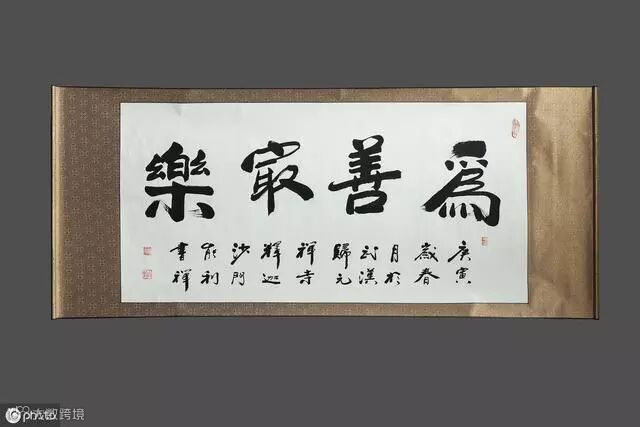 爲善最樂
庚寅
歲春
月於
武漢
歸元
禪寺
釋迦
沙門
能利
書祥
大数跨境